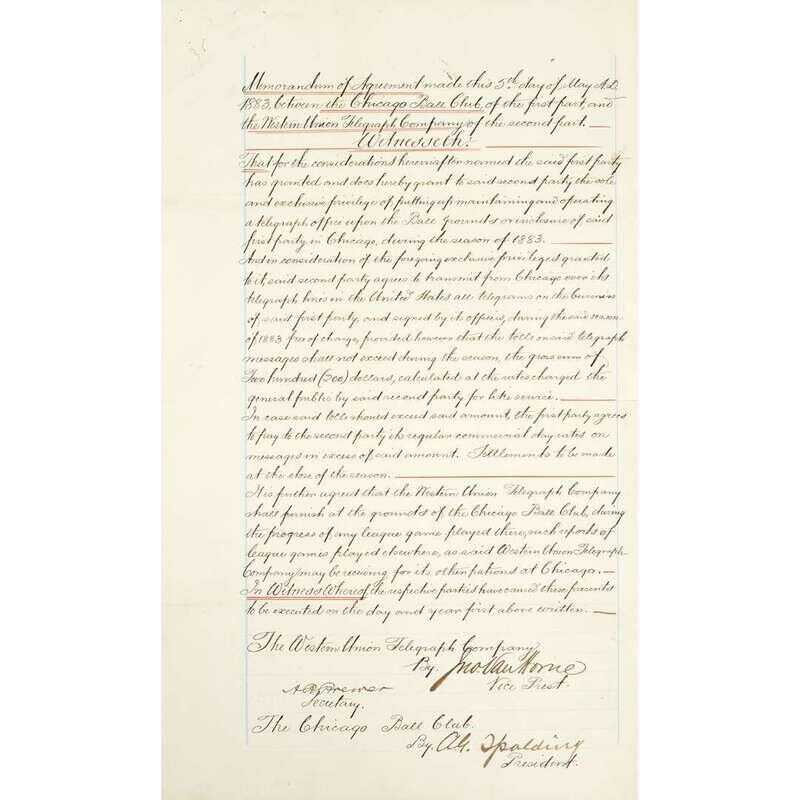 Memorandum of Agreement made this 5th day of May A.D.
1883, between the Chicago Ball Club, of the first part, and
the Western Union Telegraph Company of the second part.
Witnesseth:
That for the considerations hereinafter named the said first party
has granted and does hereby grant to said second party the sole
and exclusive privilege of putting up maintaining and operating
a telegraph office upon the Ball Grounds or inclosure of, said
first party in Chicago, during the season of 1883.
And in consideration of the foregoing exclusive privileges granted
to it, said second party agrees to transmit from Chicago over its
telegraph lines in the United States all telegrams on the business
of, said first party, and signed by its officers, during the said season
of 1883 free of charge, provided however that the tolls on said telegraph
messages shall not exceed during the season, the gross sum of
Two hundred (200) dollars, calculated at the rates charged the
general public by said second party for like service.
In case said tolls should exceed said amount, the first party agrees
to pay to the second party its regular commercial day rates on
messages in excess of, said amount. Settlements to be made
at the close of the season.
It is further agreed that the Western Union Telegraph Company
shall furnish at the grounds of the Chicago Ball Club, during
the progress of any league game played there, such reports of
league games played elsewhere, as said Western Union Telegraph
Company may be receiving for its other patrons at Chicago.
In Witness Whereof, the respective parties have caused these presents
to be executed on the day and year first above written.
The Western Union Telegraph Company
By, Jno. Van Horne
Vice Prest.
A.R. Brewer
Secretary.
The Chicago Ball Club.
By, A.G. Spalding
President.